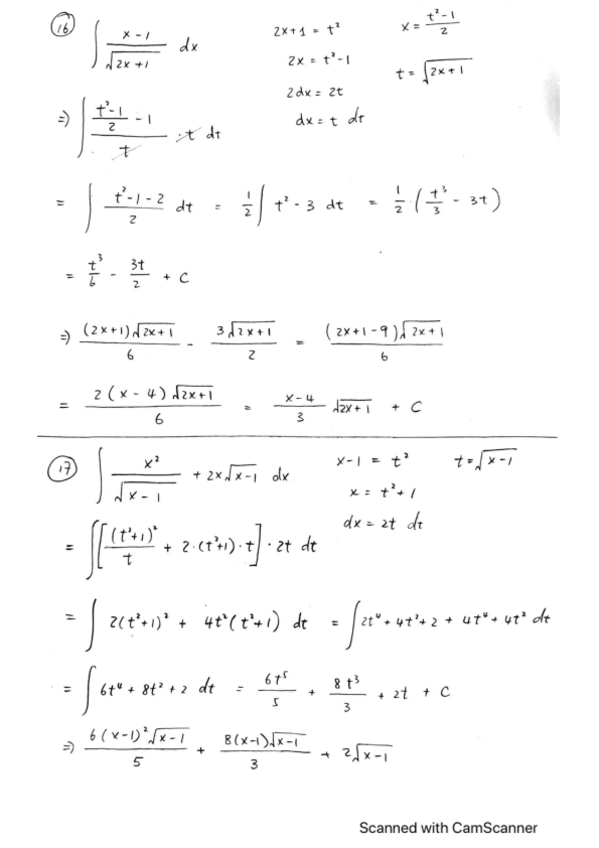 16 ∫ (x-1)/√(2x+1) dx    2x+1 = t²    x = (t²-1)/2
2x = t²-1    t = √(2x+1)
2dx = 2t
dx = t dt
=) ∫ ((t²-1)/2 - 1)/t · t dt
= ∫ (t²-1-2)/2 dt = 1/2 ∫ t² - 3 dt = 1/2 · (t³/3 - 3t)
= t³/6 - 3t/2 + C
=) (2x+1)√(2x+1)/6 - 3√(2x+1)/2 = (2x+1-9)√(2x+1)/6
= 2(x-4)√(2x+1)/6 = (x-4)/3 √(2x+1) + C
17 ∫ x²/√(x-1) + 2x√(x-1) dx    x-1 = t²    t = √(x-1)
x = t²+1
dx = 2t dt
= ∫[(t²+1)²/t + 2·(t²+1)·t]·2t dt
= ∫ 2(t²+1)² + 4t²(t²+1) dt = ∫ 2t⁴ + 4t² + 2 + 4t⁴ + 4t² dt
= ∫ 6t⁴ + 8t² + 2 dt = 6t⁵/5 + 8t³/3 + 2t + C
=) 6(x-1)²√(x-1)/5 + 8(x-1)√(x-1)/3 + 2√(x-1)
Scanned with CamScanner